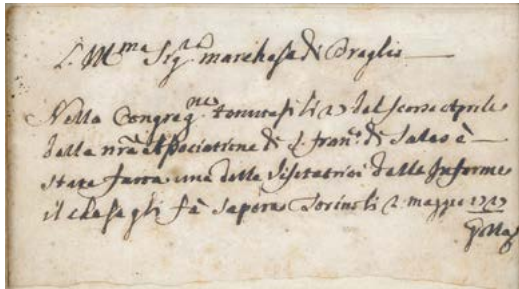 Ill.ma Sig.ra marchesa di Breglio
Nella Congreg.ne tenutasi li 27 del scorso Aprile
dalla nrã Associatione di S. Fran.co di Sales è
stata fatta una delle Visitatrici dalle Inferme
il che se gli fà sapere Torino li 2 maggio 1727